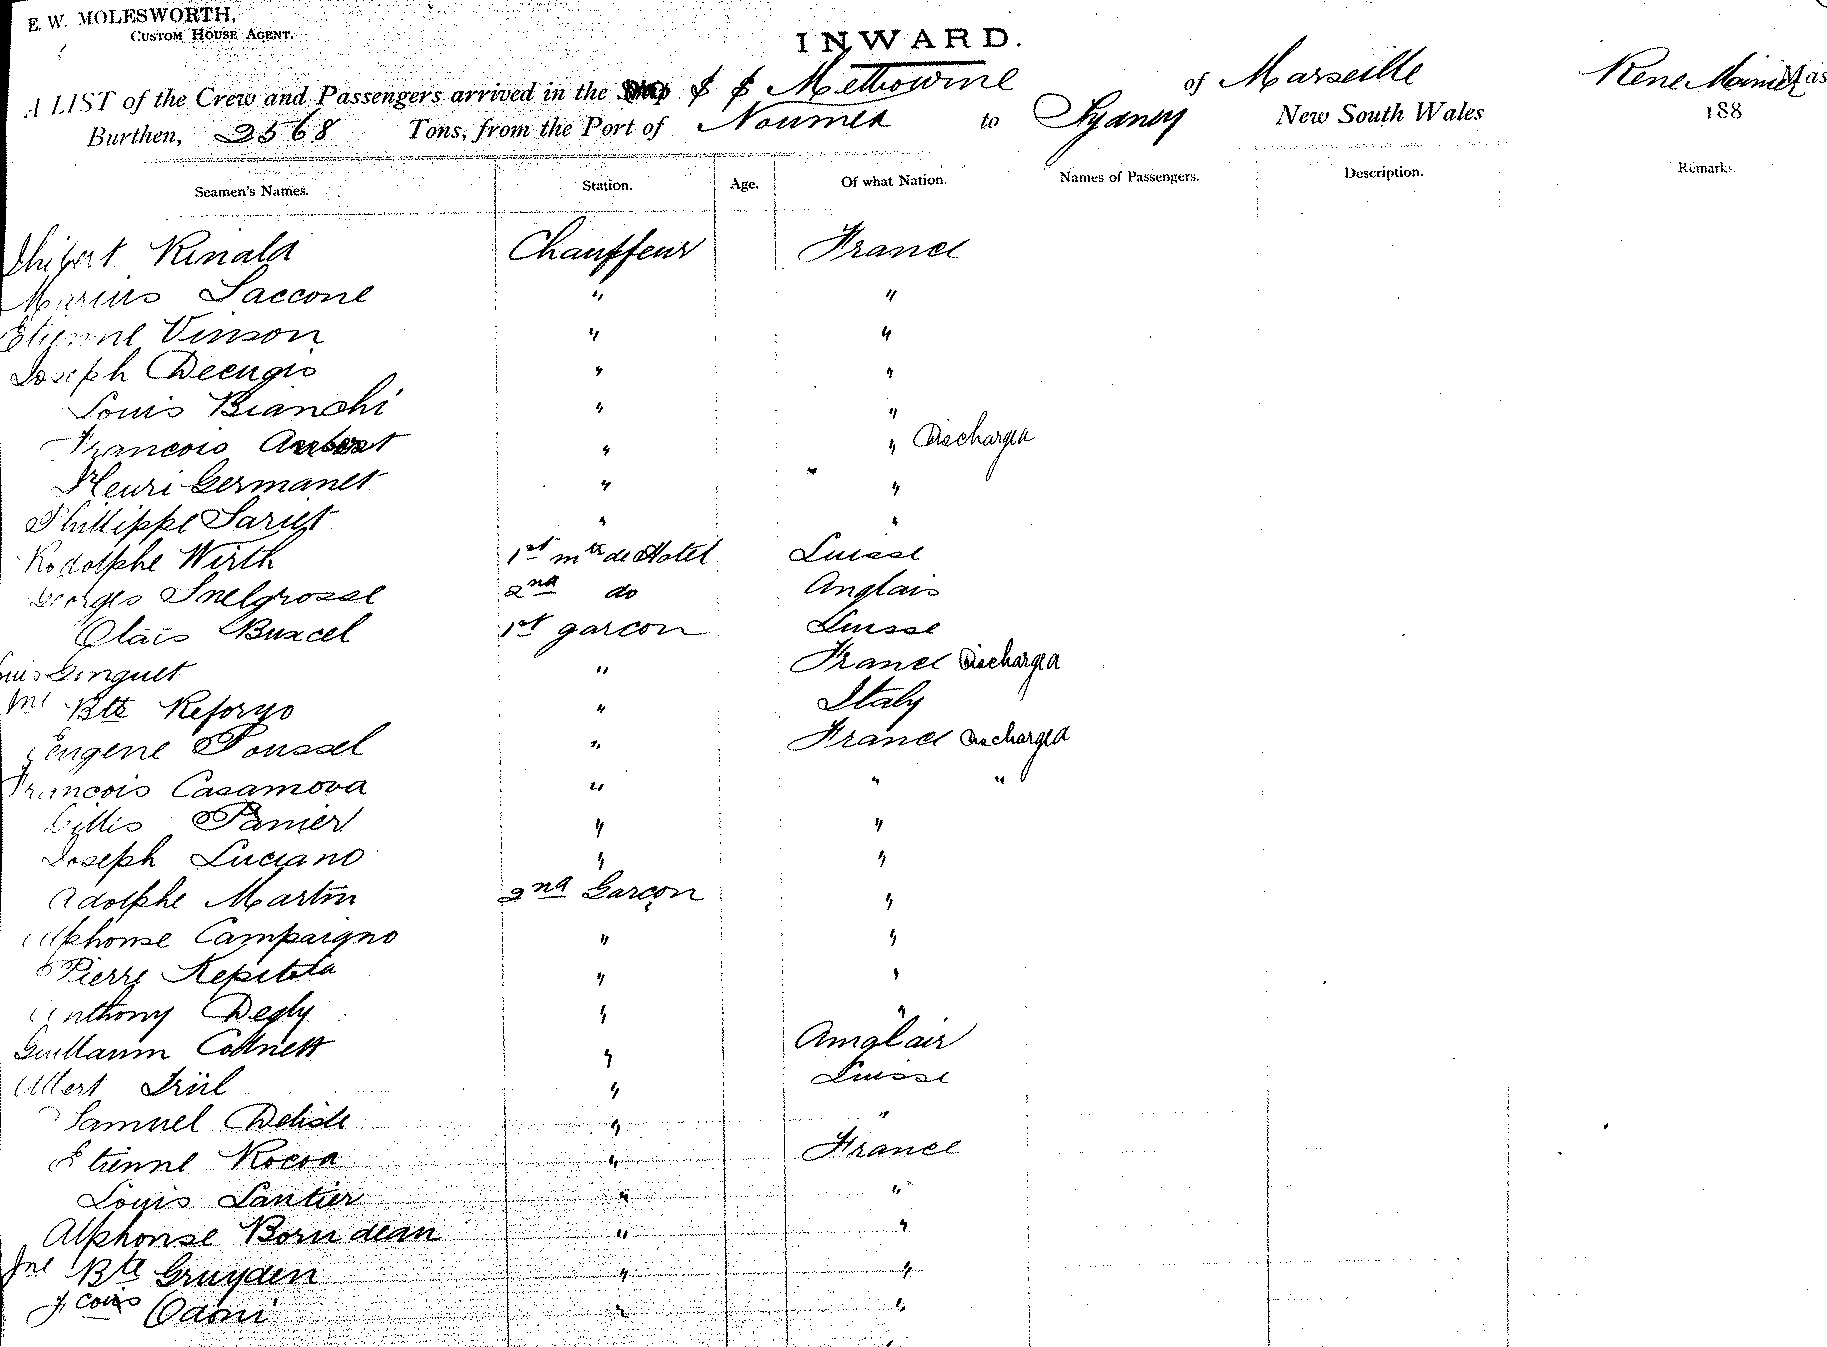 E. W. MOLESWORTH,
CUSTOM HOUSE AGENT.
INWARD.
A LIST of the Crew and Passengers arrived in the S S Melbourne of Marseille Rene Mas
Burthen, 2568 Tons, from the Port of Noumea to Sydney New South Wales 188
Seamen's Names. Station. Age. Of what Nation. Names of Passengers. Description. Remarks.
Rinald Chauffeur France
Marius Saccone " "
Etienne Vinson " "
Joseph Decugis " "
Louis Bianchi " "
Francois " " Discharged
Henri Germanet " "
Phillippe Sariet " "
Rodolphe Wirth 1st mtr de Hotel Suisse
Georges Snelgrosse 2nd do Anglais
Olais Buxcel 1st garcon Suisse
Ginguet " France Discharged
Jn1 Bte Reforzo " Italy
Eugene Poussel " France Discharged
Francois Casamova " " "
Gillis Panier " "
Joseph Luciano " "
Adolphe Martin 2nd Garçon "
Alphonse Campaigno " "
Pierre Repiteta " "
Anthony Degly " "
Guillaum Collnett " Anglair
Albert Trül " Suisse
Samuel Delisle " "
Etienne Rocca " France
Louis Lantier " "
Alphonse Bornudean " "
Jne Bte Gruyden " "
fcois Oddni " "